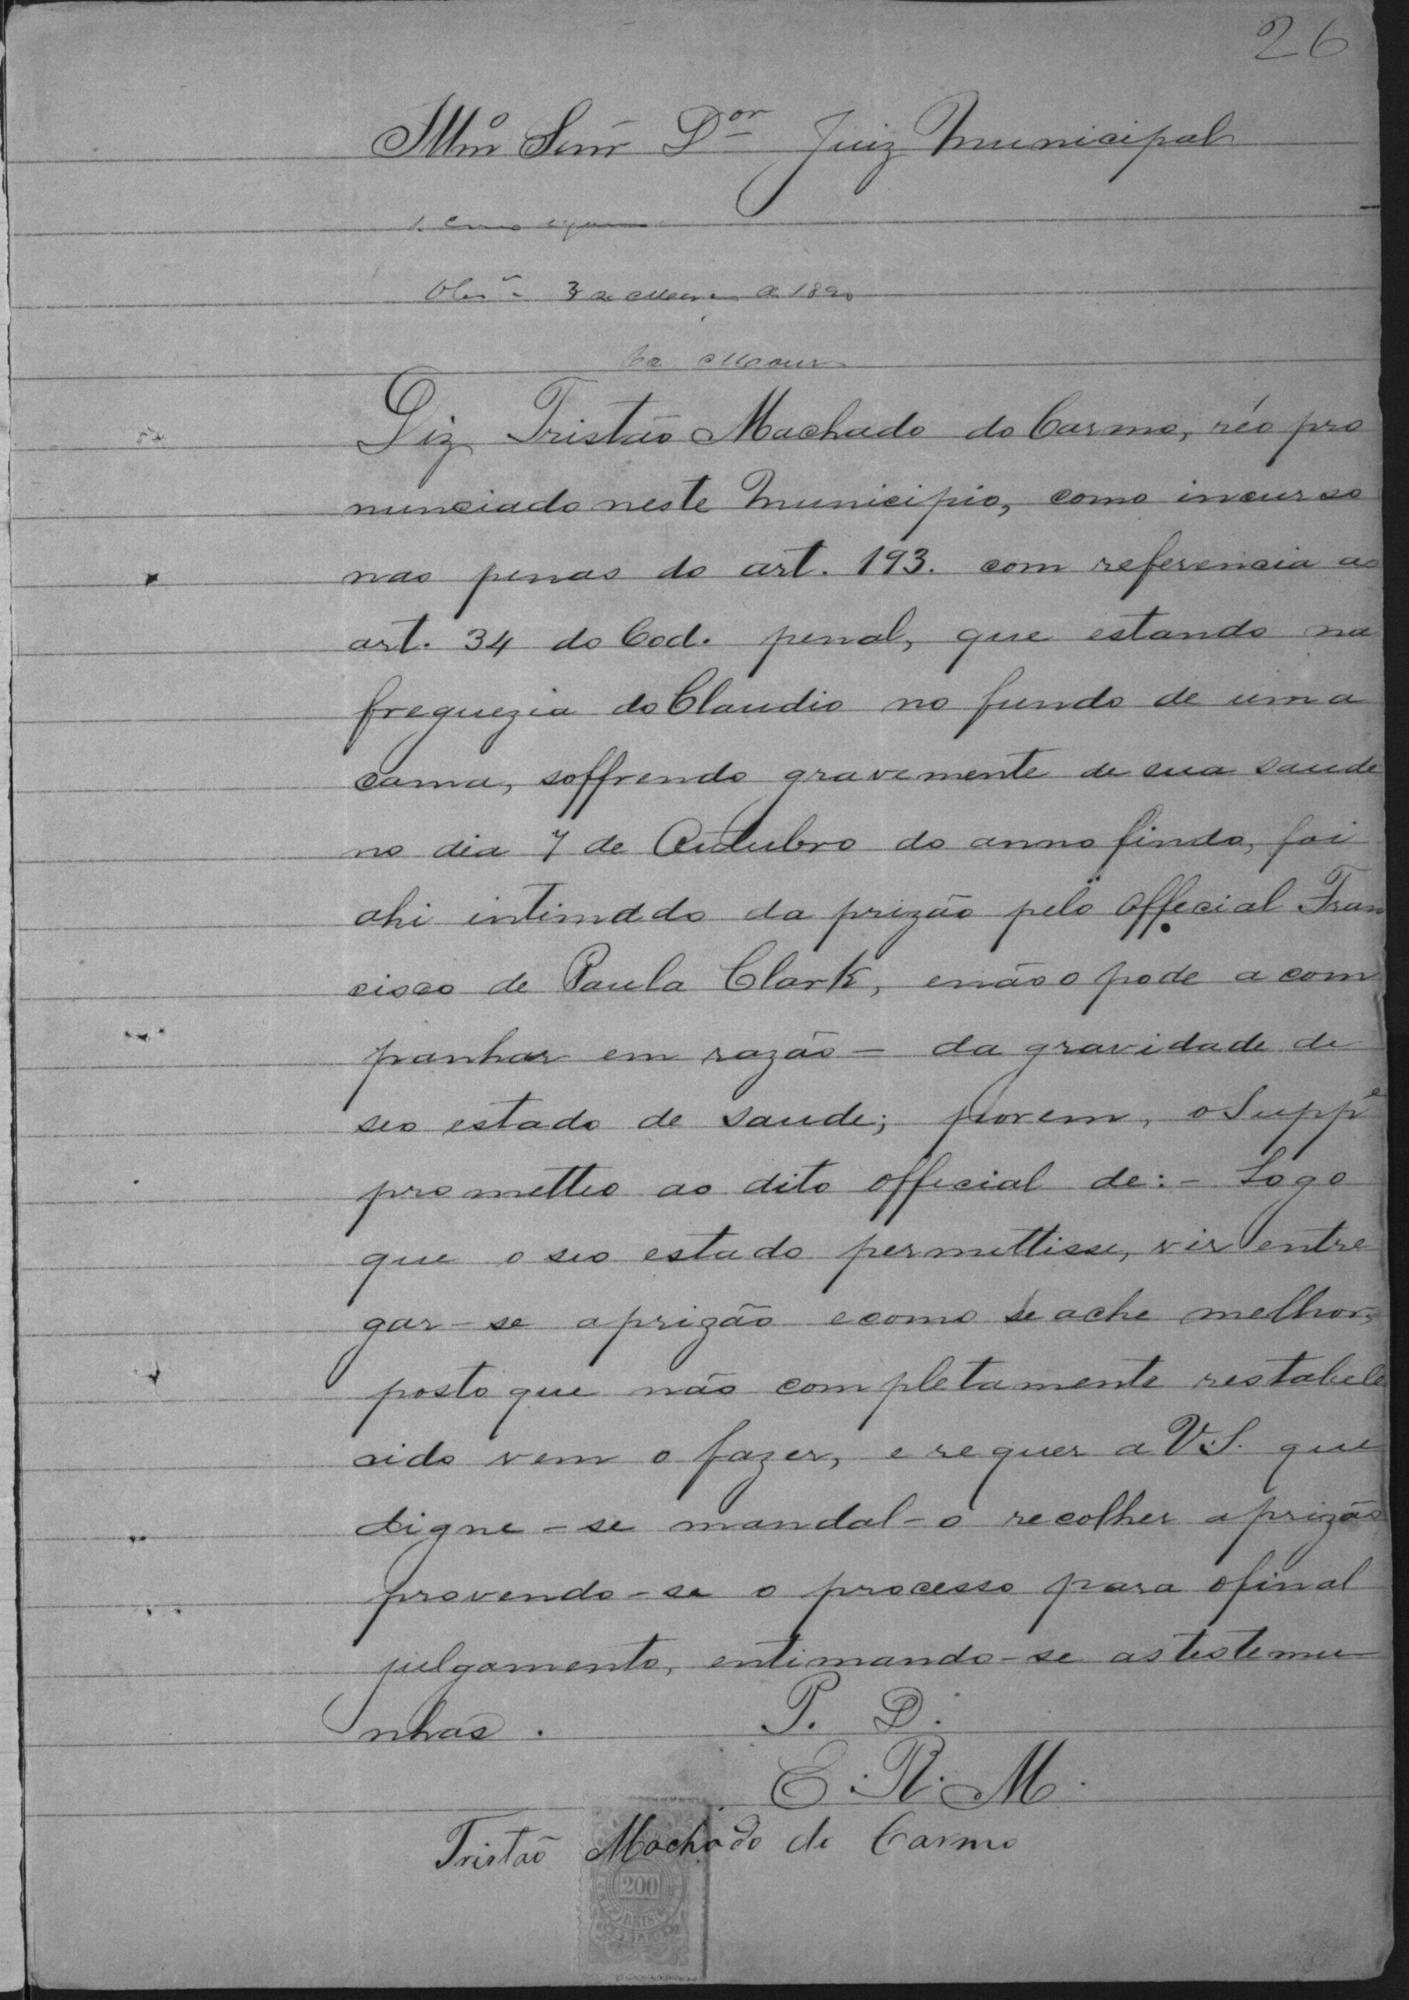 26
Illmº Senr̃ Dor Juiz Municipal
3 de de 1890
Diz Tristão Machado do Carmo, réo pro
nunciado neste Municipio, como incurso
nas penas do art. 193. com referencia ao
art. 34 do Cod. penal, que estando na
freguezia do Claudio no fundo de uma
cama, soffrendo gravemente de sua saude
no dia 7 de Outubro do anno findo, foi
ahi intimado da prizão pelo Official Fran
cisco de Paula Clark, e não o pode a com
panhar em razão - da gravidade de
seo estado de saude; porem, o Suppe
prometteo ao dito official de: - Logo
que o seo estado permittisse, vir entre
gar-se a prizão e como se ache melhor,
posto que não completamente restabele
sido vem o fazer, e requer a V.S. que
digne-se mandal-o recolher a prizão
provendo-se o processo para o final
julgamento, entimando-se as testemu
nhas. P. D.
E. R. M.
Tristão Machado do Carmo
200
REIS